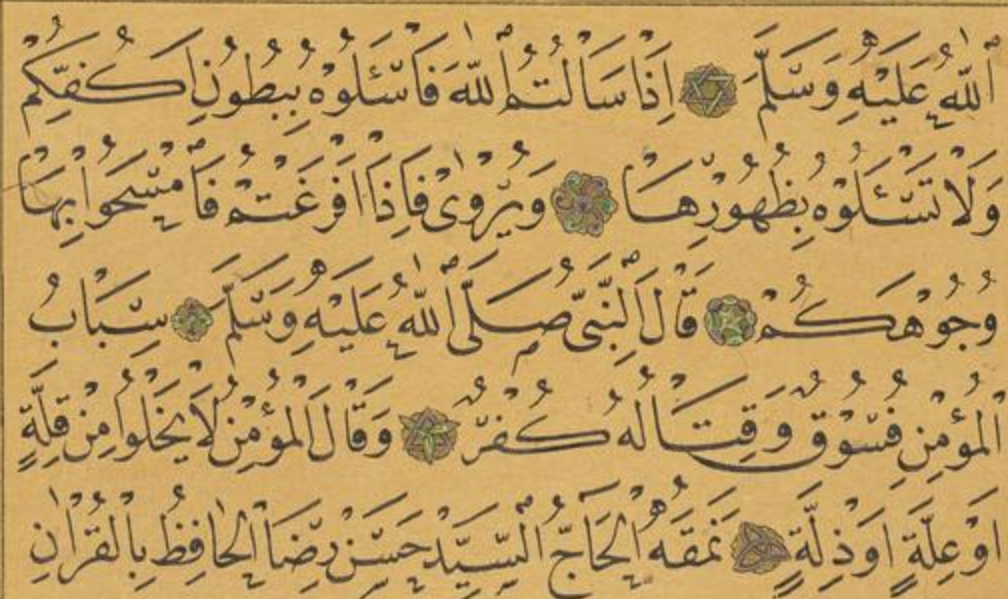 اللّٰهُ عَلَيْهِ وَسَلَّمَ اِذَا سَاَلْتُمُ اللّٰهَ فَاسْئَلُوهُ بِبُطُونِ اَكُفِّكُمْ
وَلَا تَسْئَلُوهُ بِظُهُورِهَا وَيُرْوٰى فَاِذَا افْرَغْتُمْ فَامْسَحُوا بِهَا
وُجُوْهَكُمْ قَالَ النَّبِىُّ صَلَّى اللّٰهُ عَلَيْهِ وَسَلَّمَ سِبَابُ
الْمُؤْمِنِ فُسُوْقٌ وَقِتَالُهُ كُفْرٌ وَقَالَ الْمُؤْمِنُ لَا يَخْلُوا مِنْ قِلَّةٍ
اَوْ عِلَّةٍ اَوْ ذِلَّةٍ نَمَقَهُ الْحَاجُّ السَّيِّدْ حَسَنْ رِضَا الْحَافِظُ بِالْقُرْاٰنِ